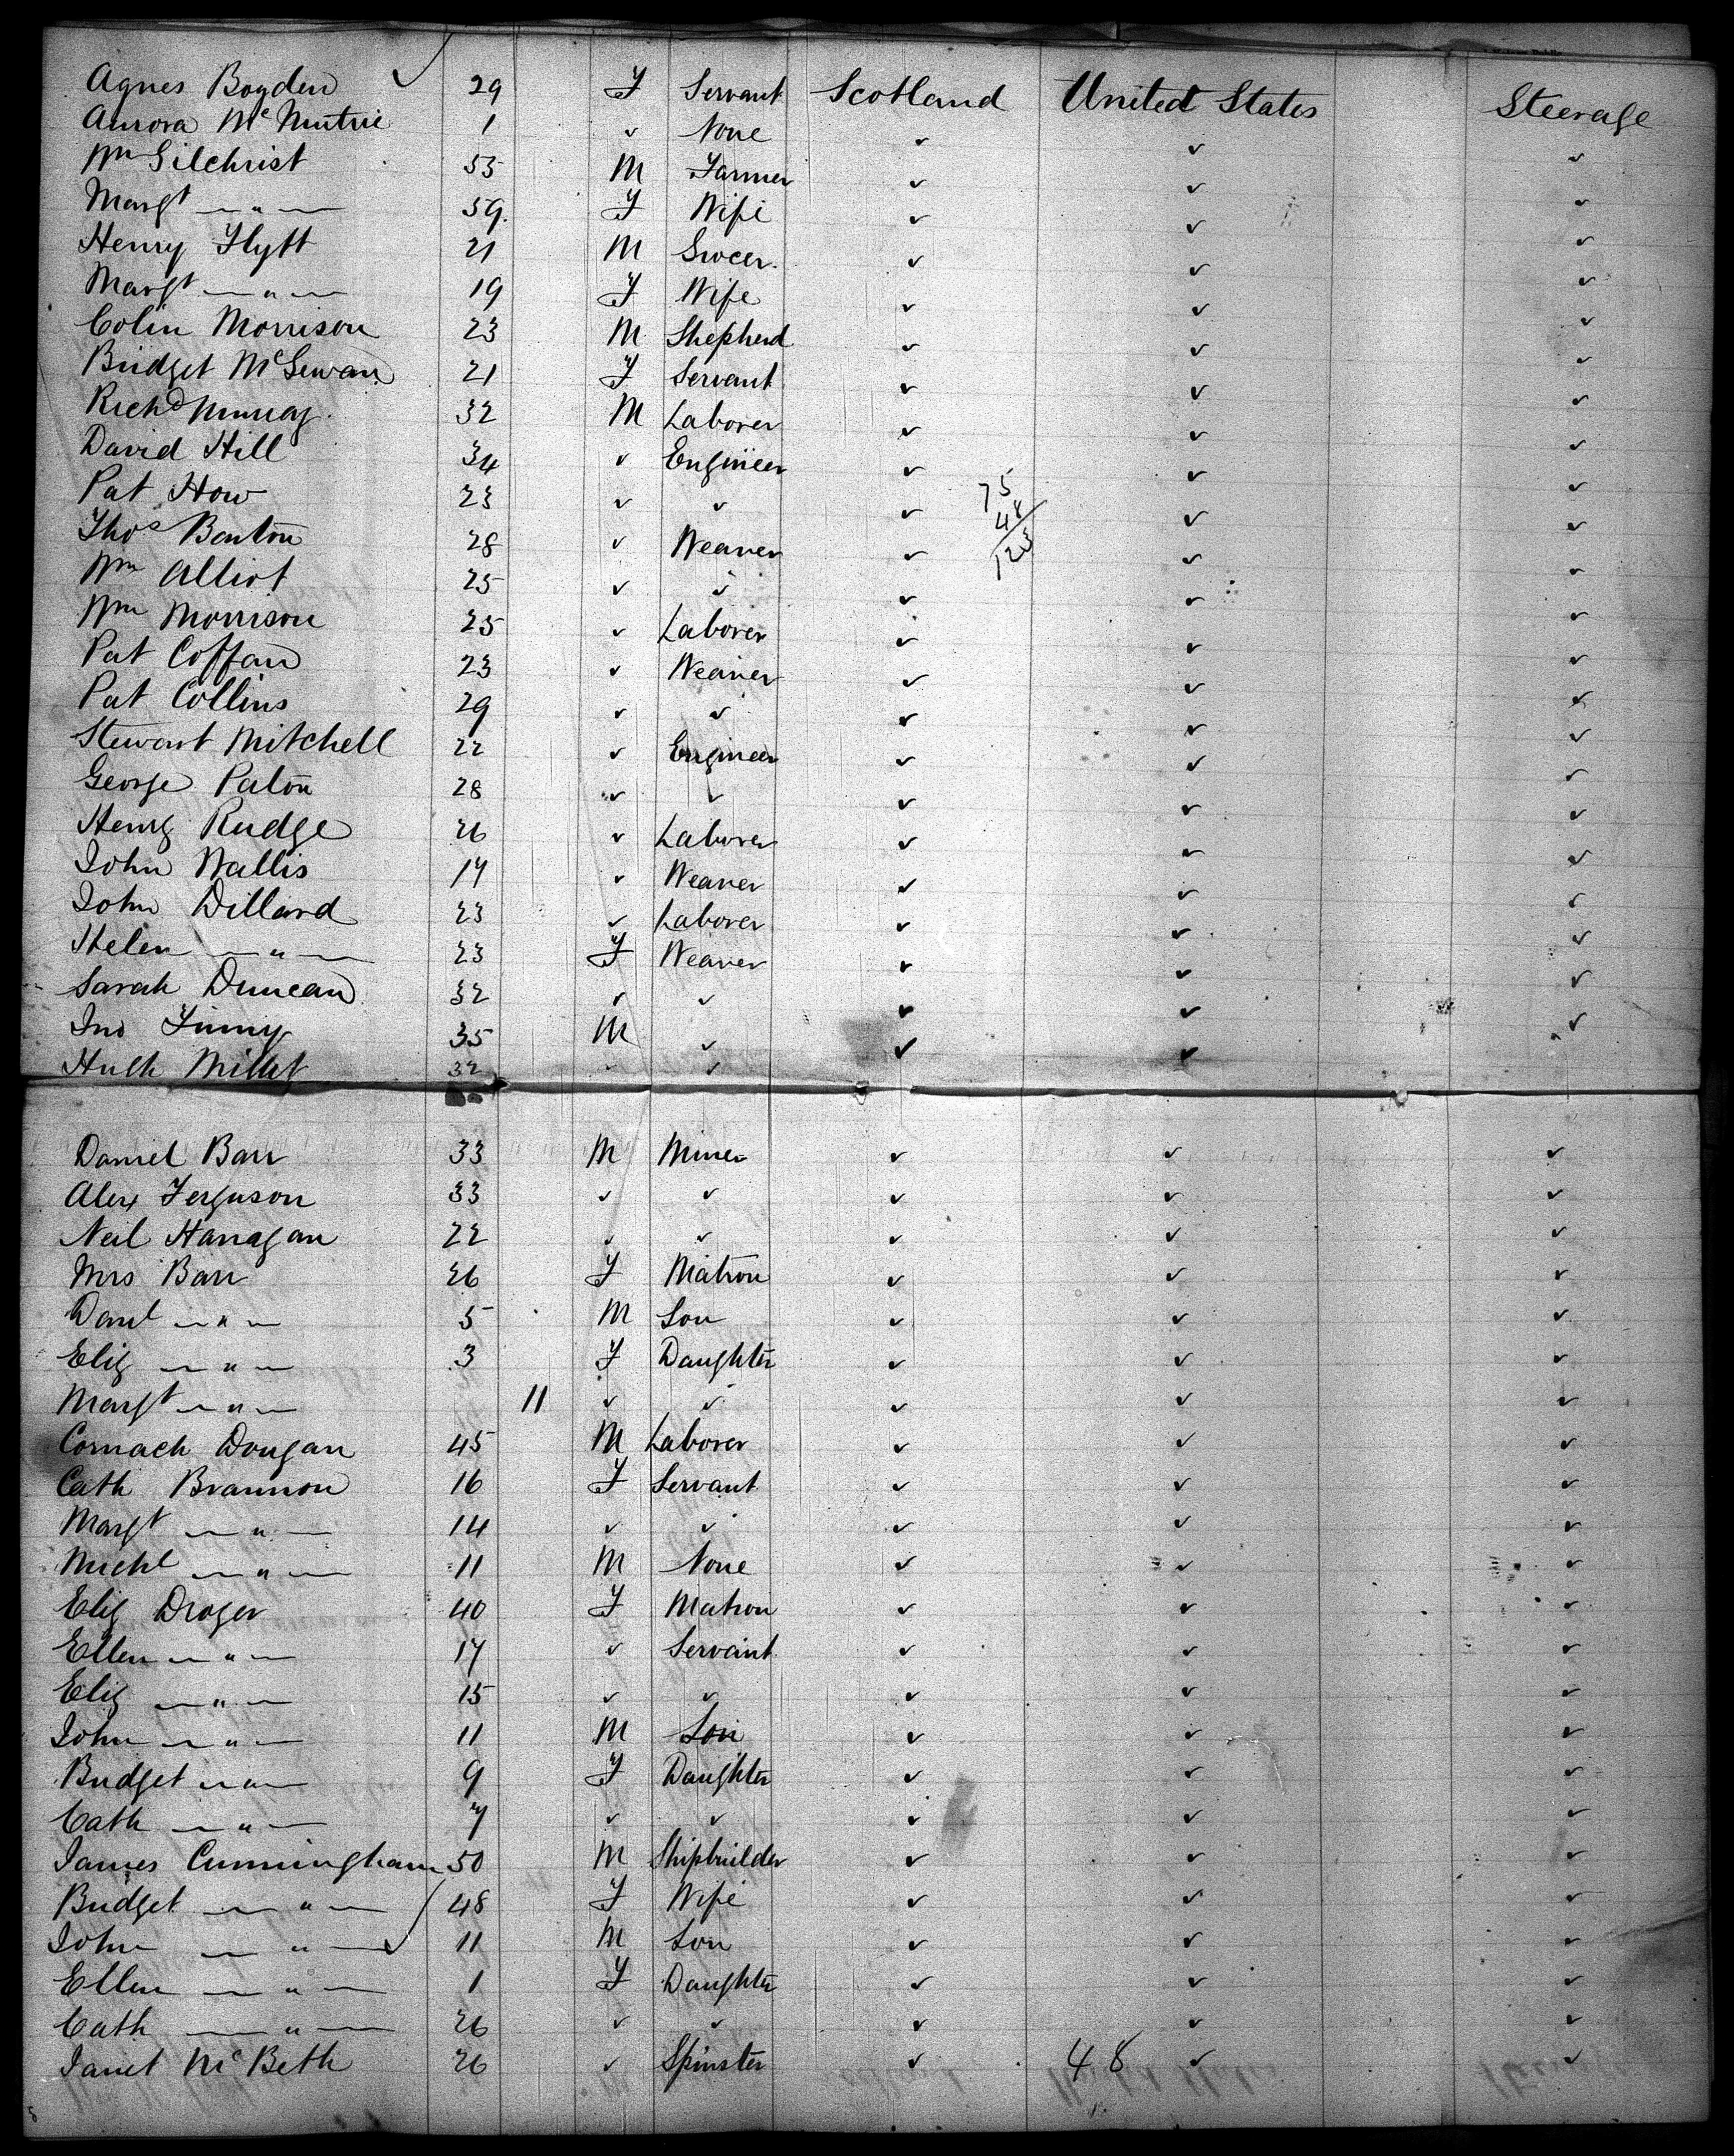 Agnes Bogden 29 F Servant Scotland United States Steerage
Aurora McNutrie 1 ✓ None ✓ ✓ ✓
Wm Gilchrist 55 M Farmer ✓ ✓ ✓
Margt — " — 59. F Wife ✓ ✓ ✓
Henry Flytt 21 M Grocer. ✓ ✓ ✓
Margt — " — 19 F Wife ✓ ✓ ✓
Colin Morrison 23 M Shepherd ✓ ✓ ✓
Bridget McGewan 21 F Servant ✓ ✓ ✓
Richd Murray. 32 M Laborer ✓ ✓ ✓
David Hill 34 ✓ Engineer ✓ ✓ ✓
Pat How 23 ✓ ✓ ✓ 75 ✓ ✓
48
Thos Barton 28 ✓ Weaver ✓ 123 ✓ ✓
Wm Alliot 25 ✓ ✓ ✓ ✓ ✓
Wm Morrison 25 ✓ Laborer ✓ ✓ ✓
Pat Coffan 23 ✓ Weaver ✓ ✓ ✓
Pat Collins 29 ✓ ✓ ✓ ✓ ✓
Stewart Mitchell 22 ✓ Engineer ✓ ✓ ✓
George Paton 28 ✓ ✓ ✓ ✓ ✓
Henry Rudge 26 ✓ Laborer ✓ ✓ ✓
John Wallis 17 ✓ Weaver ✓ ✓ ✓
John Dillard 23 ✓ Laborer ✓ ✓ ✓
Helen — " — 23 F Weaver ✓ ✓ ✓
Sarah Duncan 32 ✓ ✓ ✓ ✓ ✓
Jno Finny 35 M ✓ ✓ ✓ ✓
Hugh 32 ✓ ✓
Daniel Barr 33 M Miner ✓ ✓ ✓
Alex Ferguson 33 ✓ ✓ ✓ ✓ ✓
Neil Hanagan 22 ✓ ✓ ✓ ✓ ✓
Mrs Barr 26 F Matron ✓ ✓ ✓
Danl — " — 5 M Son ✓ ✓ ✓
Eliz — " — 3 F Daughter ✓ ✓ ✓
Margt — " — 11 ✓ ✓ ✓ ✓ ✓
Cornach Dougan 45 M Laborer ✓ ✓ ✓
Cath Brannon 16 F Servant ✓ ✓ ✓
Margt — " — 14 ✓ ✓ ✓ ✓ ✓
Michl — " — 11 M None ✓ ✓ ✓
Eliz Droger 40 F Matron ✓ ✓ ✓
Ellen — " — 17 ✓ Servant ✓ ✓ ✓
Eliz — " — 15 ✓ ✓ ✓ ✓ ✓
John — " — 11 M Son ✓ ✓ ✓
Bridget — " — 9 F Daughter ✓ ✓ ✓
Cath — " — 7 ✓ ✓ ✓ ✓ ✓
James Cunningham 50 M Shipbuilder ✓ ✓ ✓
Bridget — " — 48 F Wife ✓ ✓ ✓
John — " — 11 M Son ✓ ✓ ✓
Ellen — " — 1 F Daughter ✓ ✓ ✓
Cath — " — 26 ✓ ✓ ✓ ✓ ✓
Janet McBeth 26 ✓ Spinster ✓ 48 ✓ ✓